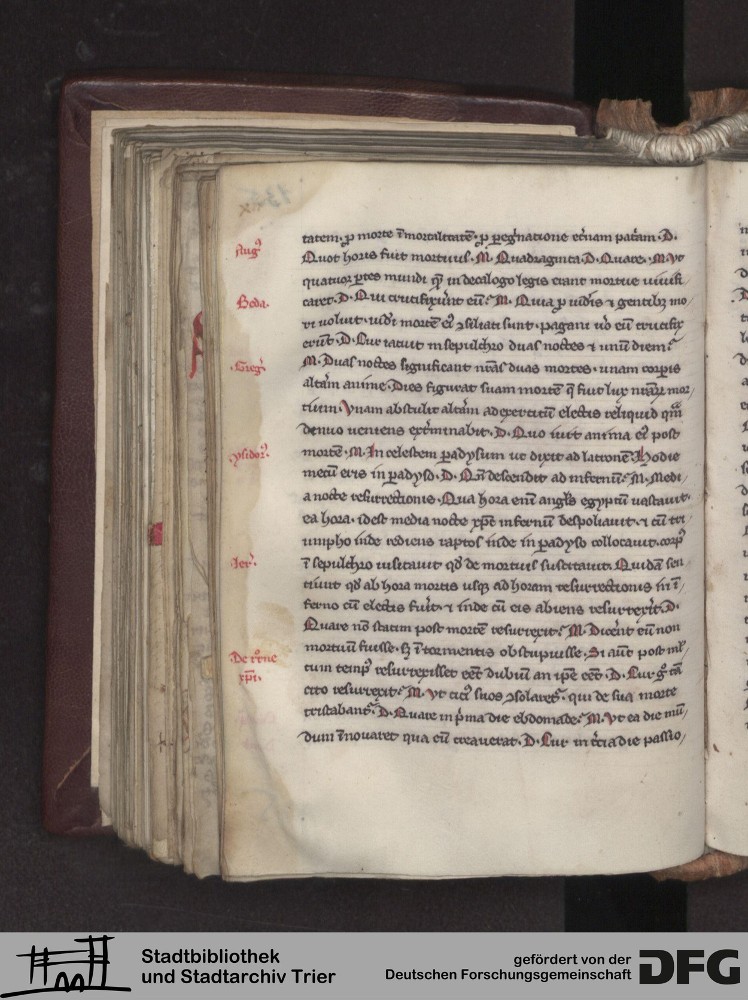 tatem. ꝑ morte īmortalitatē. ꝑ ꝑegͥnatione et̄nam pat͛am. D.
Augꝰ
Quot horis fuit mortuus. M. Quadraginta. D. Quare. M. Vt
quatuor ꝑtes mundi q̄ in decalogo legis erant mortue uiuifi
Beda.
caret. D. Qui crucifixer̄t eū? M. Quia ꝑ iudıs ⁊ gentilıb3 mo
ri uoluit. iudı̄ mortē eiꝰ ɔsiliati sunt. pagani u̾o eū crucifix
er̄t. D. Cur iacuit in sepulchro duas noctes ⁊ unū diem?
Greg͛
M. Duas noctes significant nr̄as duas mortes. unam corꝑis
altam̄ anime. Dies figurat suam mortē q̄ fuit lux nr̄aꝝ mor
tium. Vnam abstulit altam̄ ad exercitiū electis reliquid qm̄
denuo ueniens ext̄minabit. D. Quo iuit anima eiꝰ post
ysidor͛
mortē. M. In celestem ꝑadysum ut dixit ad latronē. Hodie
mecū eris in ꝑadyso. D. Qn̄ descendit ad infernū? M. Medi
a nocte resurrectionis. Qua hora eni angl̄s egyptū uastauit.
ea hora. idest media nocte xp̄c infernū despoliauit. ⁊ cū tri
umpho inde rediens raptos inde in ꝑadyso collocauit. corpꝰ
Ier͛.
ī sepulchro uisitauit. qd̄ de mortuis suscitauit. Quidā sen
tiunt qd̄ ab hora mortis usqꝫ ad horam resurrectionis in ī
ferno cū electis fuit̄. ⁊ inde cū eis abiens resurrexit̄. D.
Quare nō statim post mortē resurrexit? M. Dicer̄t eū non
De r̄r̄ne
mortuū fuisse. sꝫ ī tormentis obstupuisse. Si aūt post ml̄
xp̄i.
tum tempꝰ resurrexisset eēt dubiū an ip̄e eēt. D. Cur gͦ tā
cito resurrexit? M. Vt citiꝰ suos ɔsolaret᷑. qui de sua morte
tristabant᷑. D. Quare in p̄ma die ebdomade? M. Vt ea die mū
dum īnouaret qua eū creauerat. D. Cur in t̄cia die passio
Stadtbibliothek
und Stadtarchiv Trier
gefördert von der
Deutschen Forschungsgemeinschaft
DFG